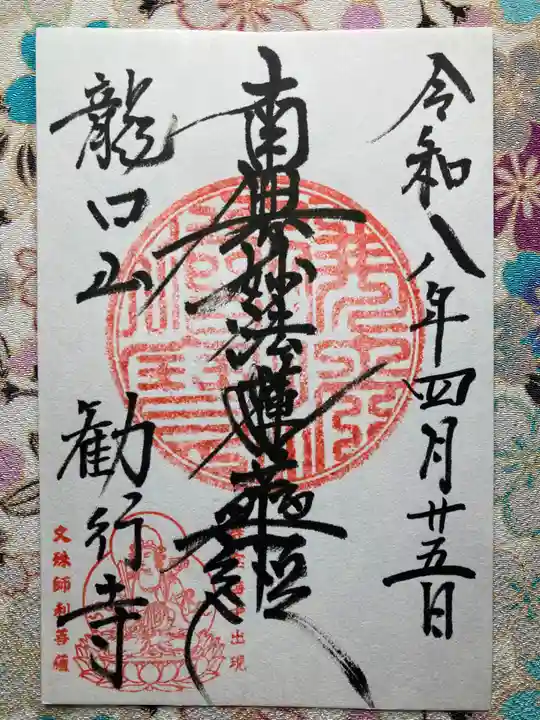 令和八年四月廿五日
南無妙法蓮華経
龍口山 勧行寺
文殊師利菩薩
出現